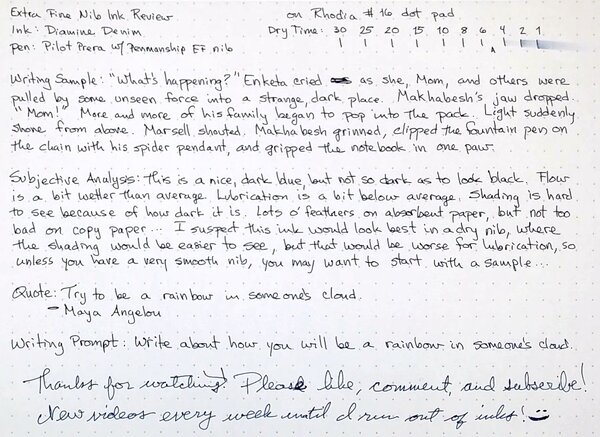 Extra Fine Nib Ink Review on Rhodia #16 dot pad
Ink: Diamine Denim Dry Time: 30 25 20 15 10 8 6 4 2 1
Pen: Pilot Prera w/ Penmanship EF nib
Writing Sample: "What's happening?" Enketa cried as she, Mom, and others were
pulled by some unseen force into a strange, dark place. Makhabesh's jaw dropped.
"Mom!" More and more of his family began to pop into the pack. Light suddenly
shone from above. Marsell shouted. Makhabesh grinned, clipped the fountain pen on
the chain with his spider pendant, and gripped the notebook in one paw.
Subjective Analysis: This is a nice, dark blue, but not so dark as to look black. Flow
is a bit wetter than average. Lubrication is a bit below average. Shading is hard
to see because of how dark it is. Lots o' feathers on absorbent paper, but not too
bad on copy paper... I suspect this ink would look best in a dry nib, where
the shading would be easier to see, but that would be worse for lubrication, so
unless you have a very smooth nib, you may want to start with a sample...
Quote: Try to be a rainbow in someone's cloud.
- Maya Angelou
Writing Prompt: Write about how you will be a rainbow in someone's cloud.
Thanks for watching! Please like, comment, and subscribe!
New videos every week until I run out of inks!